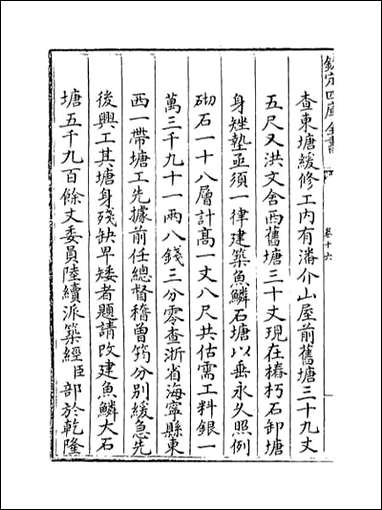 欽定四庫全書
卷十六
查東塘緩修工内有潘介山屋前舊塘三十九丈
五尺又洪文舍西舊塘三十丈現在樁朽石卸塘
身矬墊亟須一律建築魚鱗石塘以垂永久照例
砌石一十八層計髙一丈八尺共估需工料銀一
萬三千九十一兩八錢三分零查浙省海寧縣東
西一帶塘工先據前任總督嵇曾筠分别緩急先
後興工其塘身殘缺卑矮者題請改建魚鱗大石
塘五千九百餘丈委員陸續派築經臣部於乾隆